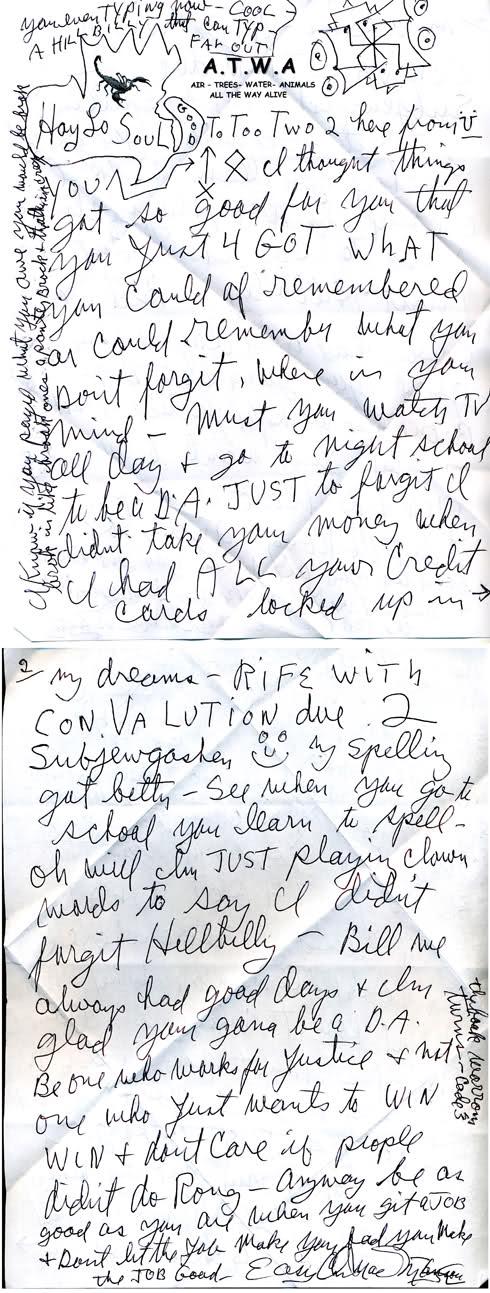 you even TYPing now - COOL
A HILL BILLY that can TYP -
FAR OUT
A.T.W.A
AIR - TREES- WATER- ANIMALS
ALL THE WAY ALIVE
Hay So Soul To Too Two 2 here from
YOU I thought things
got so good for you that
you just 4 GOT WHAT
you could of remembered
or could remember what you
Dont forgit, where in your
mind - must you watch TV
all day & go to night school
to be a D.A. JUST to forgit I
didnt take your money when
I had ALL your Credit
cards locked up in →
I know if you payed what you owe you would be
2 my dreams - RiFE WiTH
CON.VA LUTION due 2
Subjewgashen my spelling
got betty - See when you go to
school you learn to spell -
oh well Im JUST playin clown
words to say I didn't
forgit Hellbilly - Bill we
always had good days & Im
glad your gona be a D.A.
Be one who works for Justice & not
one who Just wants to WiN
WiN & dont Care if people
didnt do Rong - anyway be as
good as you are when you git a JOB
& Dont let the Job make you bad you make
the JOB Good - Easy
the book worrom
turns - Code 3